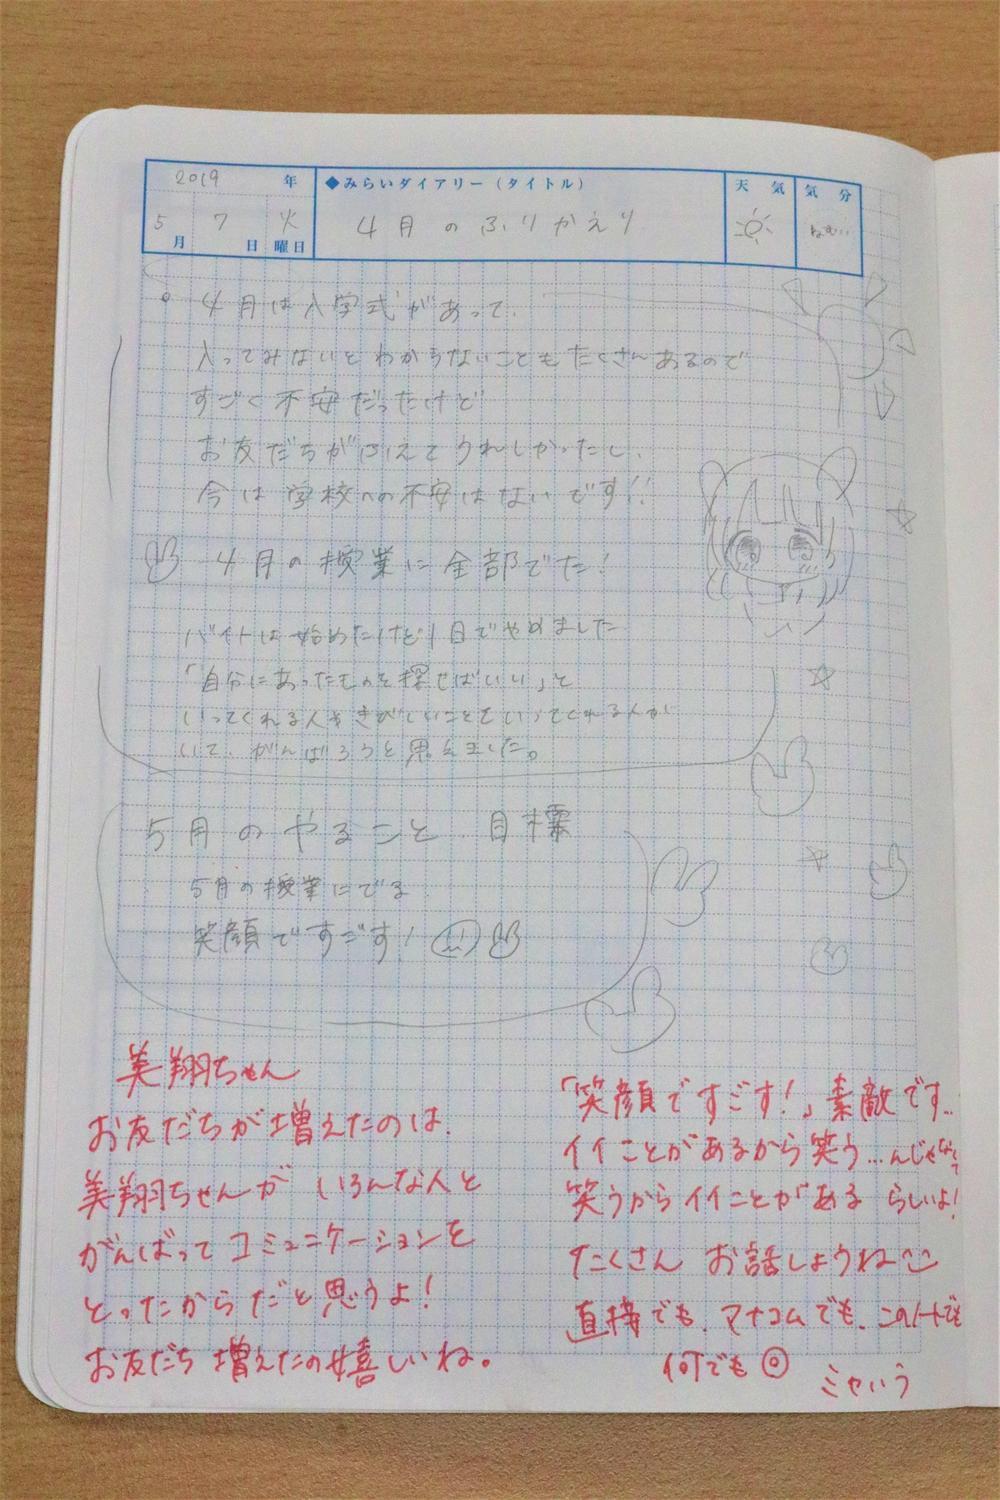 2019 年
5 月 7 日 火 曜日
◆みらいダイアリー（タイトル）
4月のふりかえり
天 気
気 分
ねむ…
4月は入学式があって、
入ってみないとわからないこともたくさんあるので
すごく不安だったけど
お友だちがふえてうれしかったし、
今は学校への不安はないです!!
4月の授業に全部でた!
バイトは始めたけど1日でやめました
「自分にあったものを探せばいい」と
いってくれる人やきびしいことをいってくれる人が
いて、がんばろうと思えました。
5月のやること、目標
5月の授業にでる
笑顔ですごす!
美翔ちゃん
お友だちが増えたのは、
美翔ちゃんが いろんな人と
がんばってコミュニケーションを
とったからだと思うよ!
お友だち増えたの嬉しいね。
「笑顔ですごす!」素敵です..
イイことがあるから笑う…んじゃなくて
笑うからイイことがある らしいよ!
たくさん お話しようね
直接でも、マナコムでも、このノートでも
何でも◎
ミヤいう